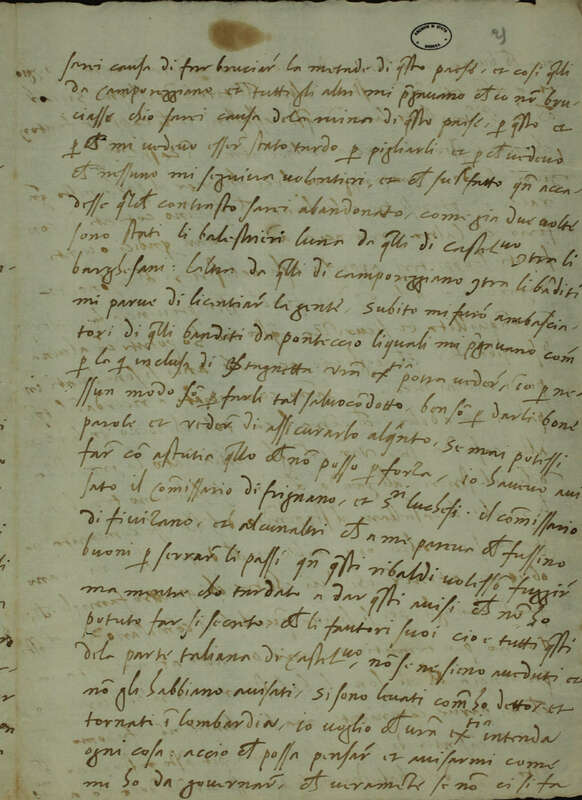 sarei causa di far bruciar la metade di q̃sto paese, et cosi q̃lli
da Camporeggiano et tutti gli altri mi p̃gavano ch'io nõ bru
ciasse chio sarei causa dela ruina di q̃sto paise, p q̃sto et
p ch mi vedevo esser stato tardo p pigliarli et p ch vedevo
ch nessuno mi seguiria volentieri, et ch sul fatto qñ acca
desse qlch contrasto sarei abandonato, come gia due volte
sono stati li balestrieri luna da q̃lli di Castelnuo cõtra li
barghesani: laltra da q̃lli di Camporeggiano cõtra li bãditi
mi parve di licentiar la gente, Subito mi furõ ambascia
tori di q̃lli banditi da ponteccio liquali mi p̃gavano com
p la q inclusa di vrã extia potra veder, io p ne
ssun modo sõ p farli tal salvocõdotto, ben sõ p darli bone
parole et veder di assicurarlo alqñto, Se mai potessi
far cõ astutia q̃llo ch nõ posso p forza, io havevo avi
sato il com̃issario di frignano, et Sri luchesi. il com̃issario
di fivizano, et alcunaltri ch a me pareva ch fussino
buoni p serrar li passi qñ q̃sti ribaldi volessõ fuggir
ma mentre cho tardato a dar q̃sti avisi ch nõ ho
potuto far si secreto ch li fautori suoi cio e tutti q̃sti
dela parte taliana de Castelnuo, nõ se ne sieno aveduti et
nõ gli habbiano avisati, Si sono levati com ho detto, et
tornati ĩ lombardia, io voglio ch vrã extia intenda
ogni cosa: accio ch possa pensar et avisarmi come
mi ho da governar, ch veramẽte se nõ ci si fa